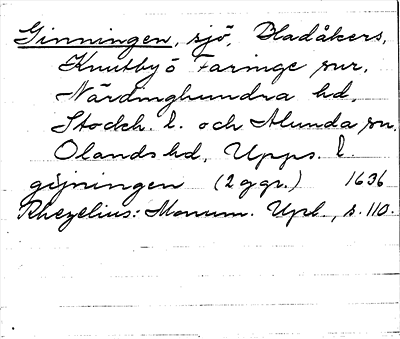 Ginningen, sjö, Bladåkers,
Knutby o Faringe snr,
Närdinghundra hd,
Stockh. l. och Alunda sn,
Olands hd, Upps. l.
giỳningen (2 ggr.) 1636
Rhezelius: Monum. Upl., s. 110.